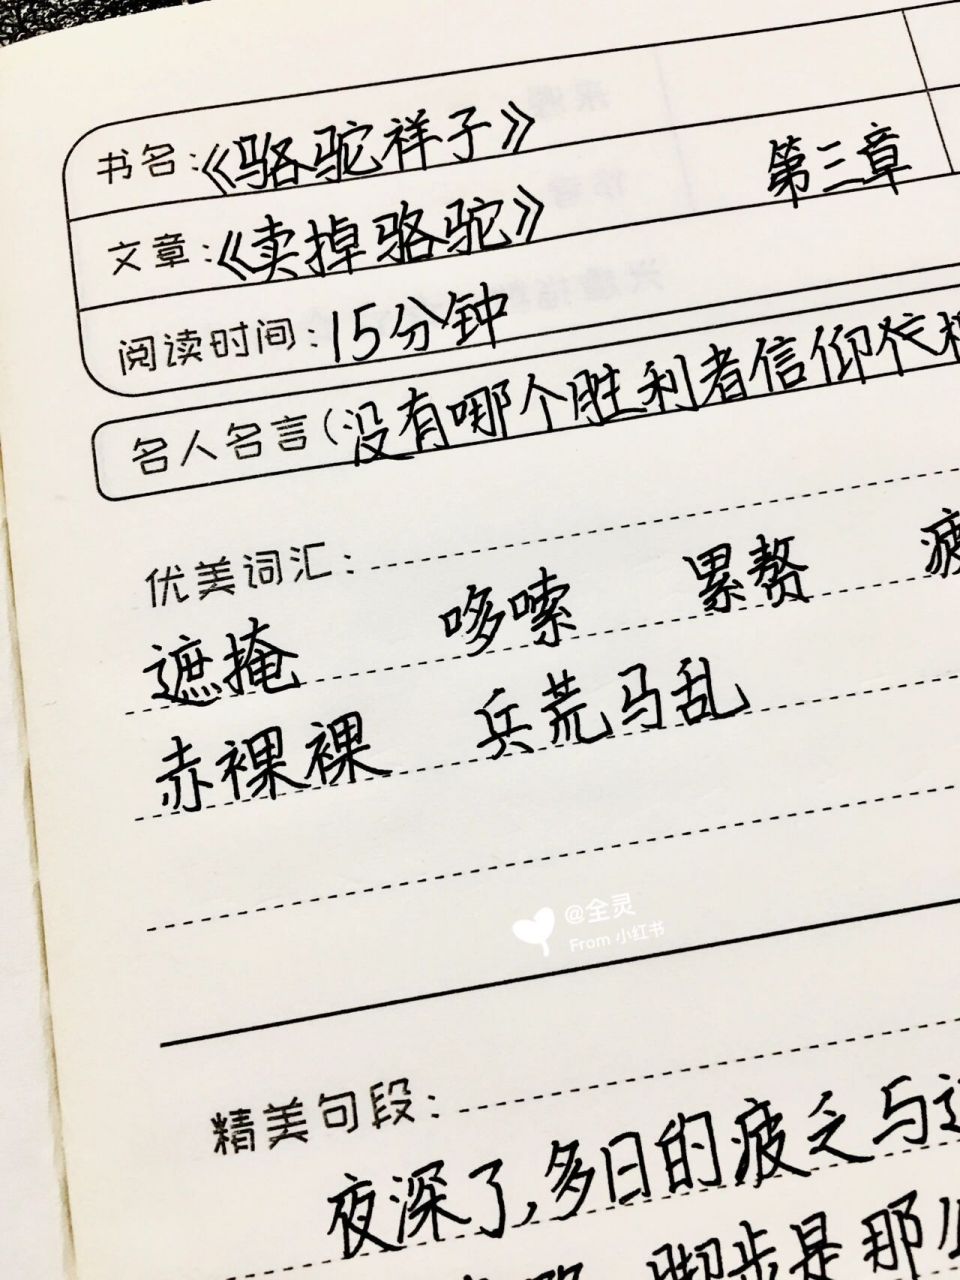 书名:《骆驼祥子》
第三章
文章:《卖掉骆驼》
阅读时间:15分钟
名人名言(没有哪个胜利者信仰
优美词汇:
遮掩 哆嗦 累赘 疲
赤裸裸 兵荒马乱
@全灵
From 小红书
精美句段:
夜深了,多日的疲乏与
脚步是那